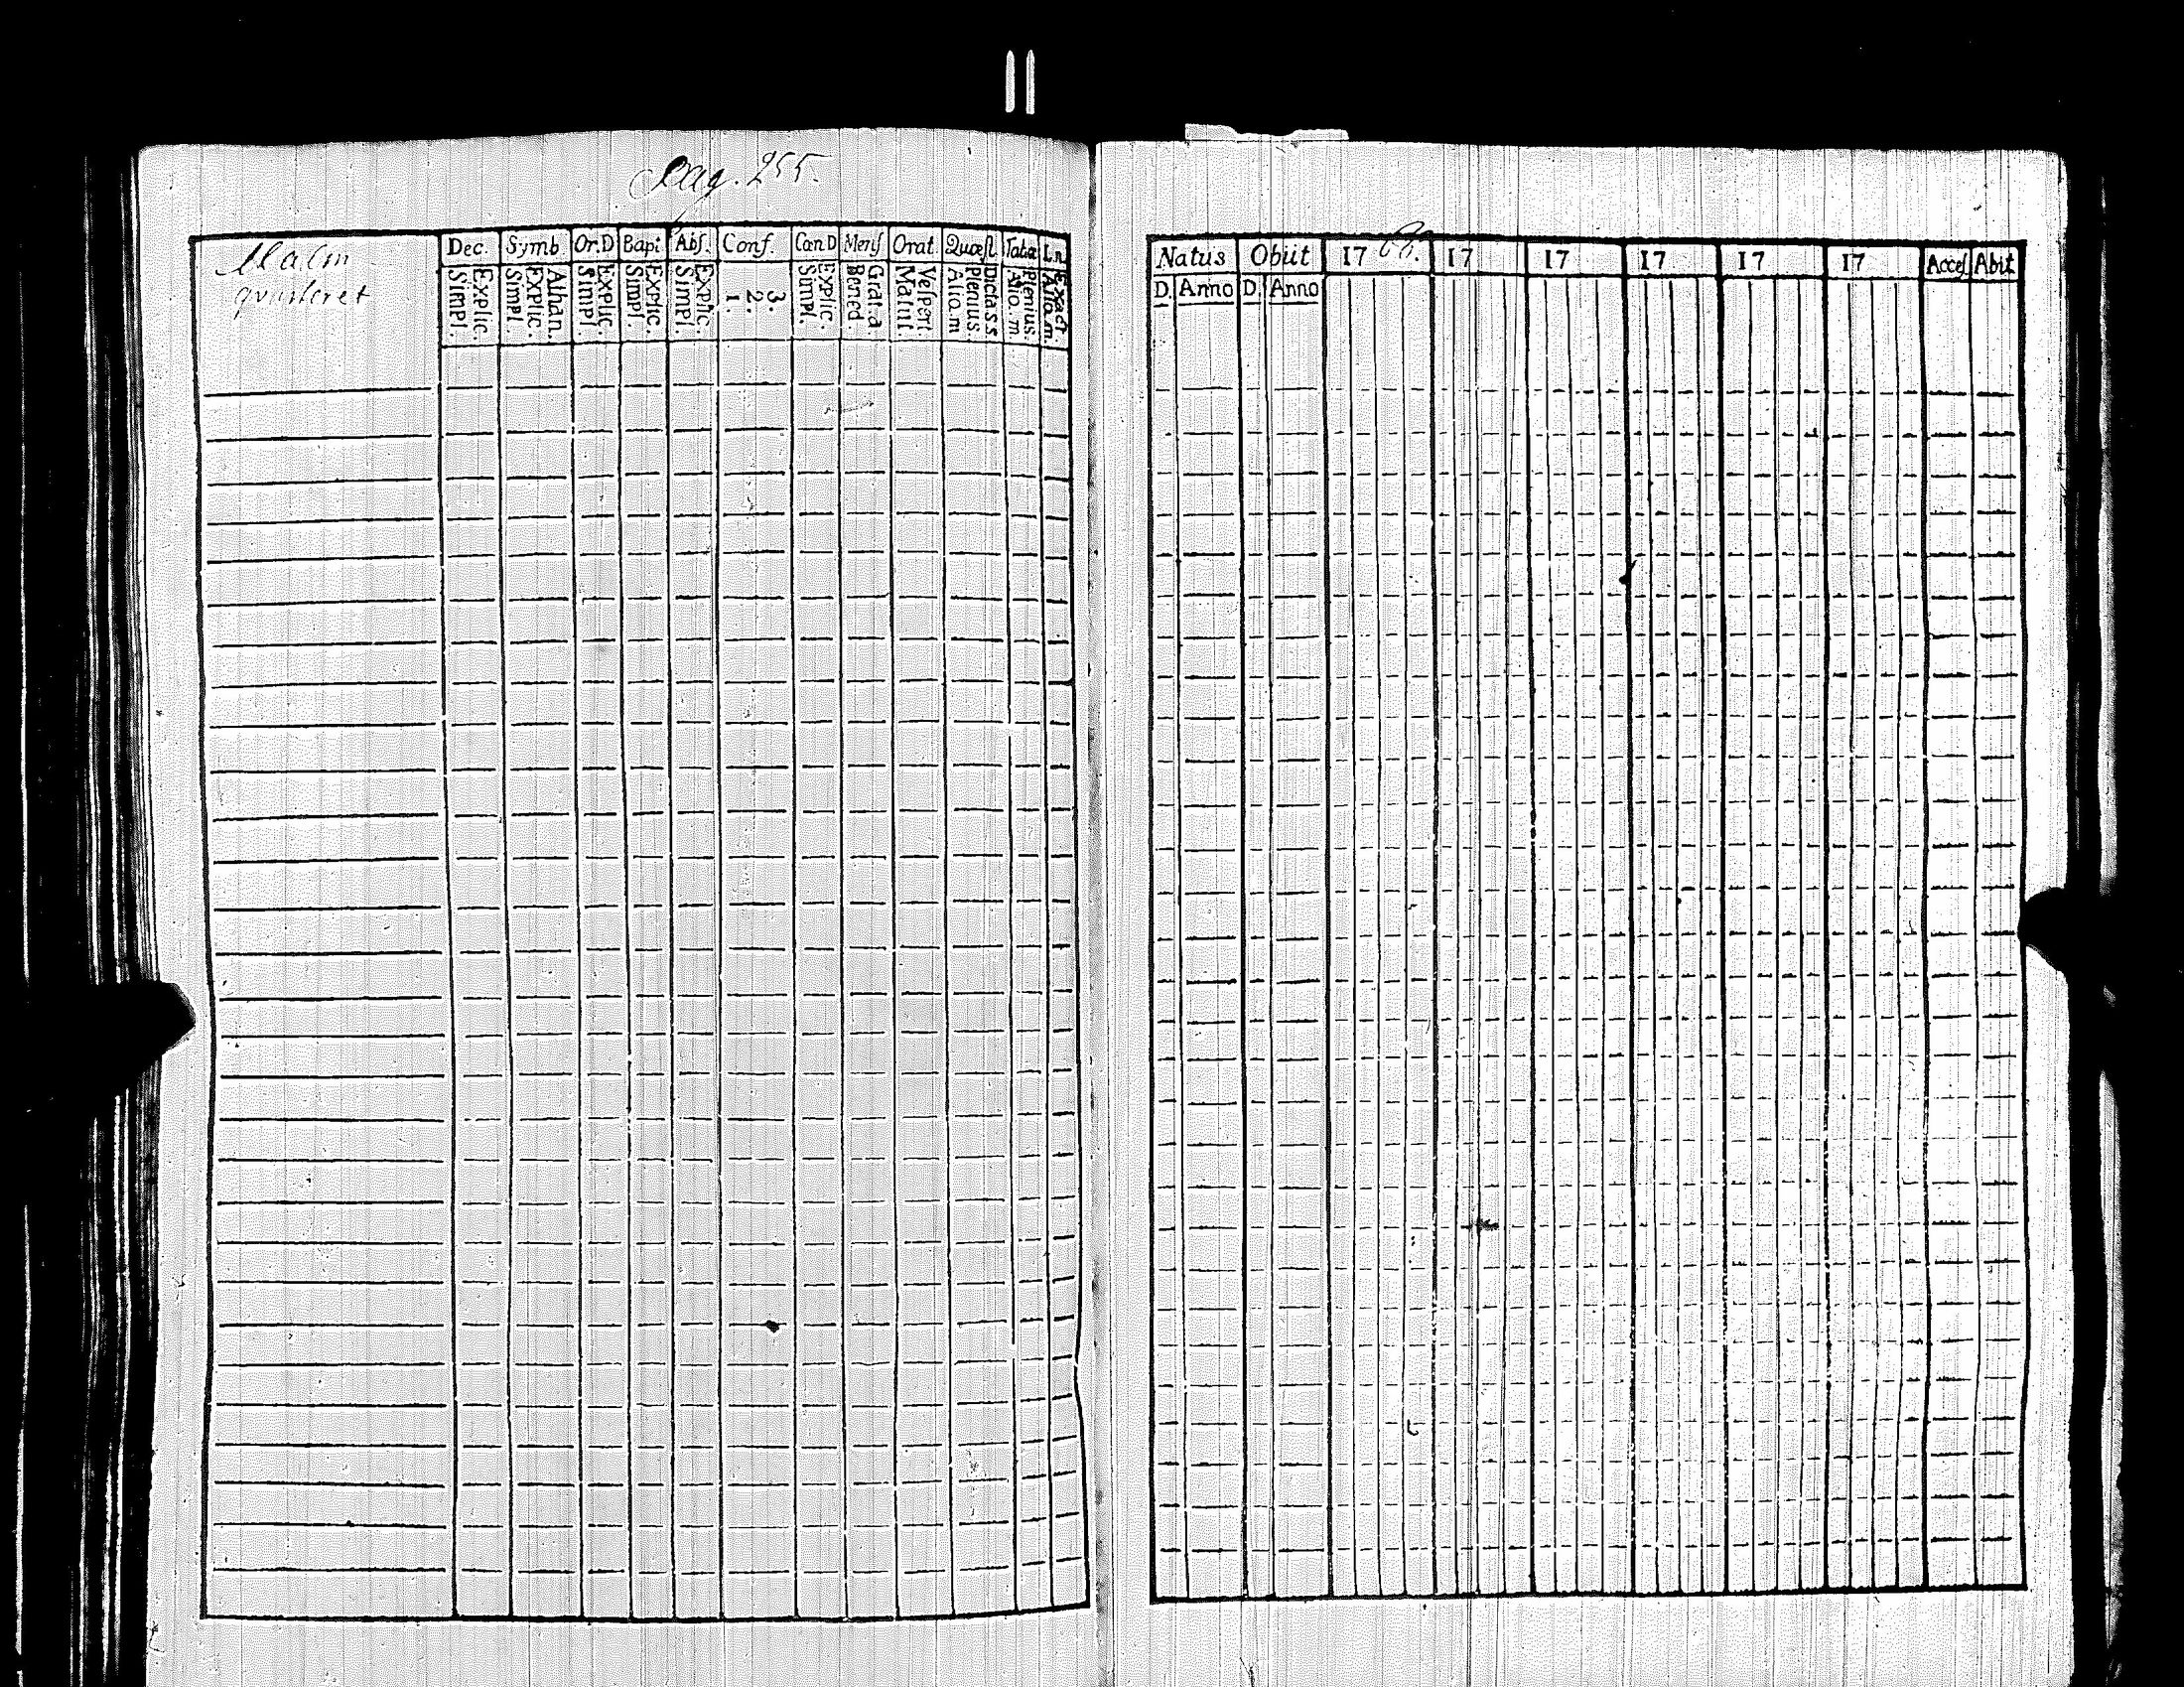 Pag. 255.
Malm
qvarteret
Dec. Symb Or.D Bapt Abs. Conf. Cœn D Mens Orat. Quæst Tabæ
Simpl. Explic. Simpl. Explic. Athan. Simpl. Explic. Simpl. Explic. Simpl. Explic. 1. 2. 3. Simpl. Explic. Bened. Grat.a Matut. Vespert. Alio.m Plenius. Dictass. Alio.m Plenius. Alio.m. Exact
Natus Obiit 17 17 17 17 17 17 Acces Abit
D. Anno D. Anno